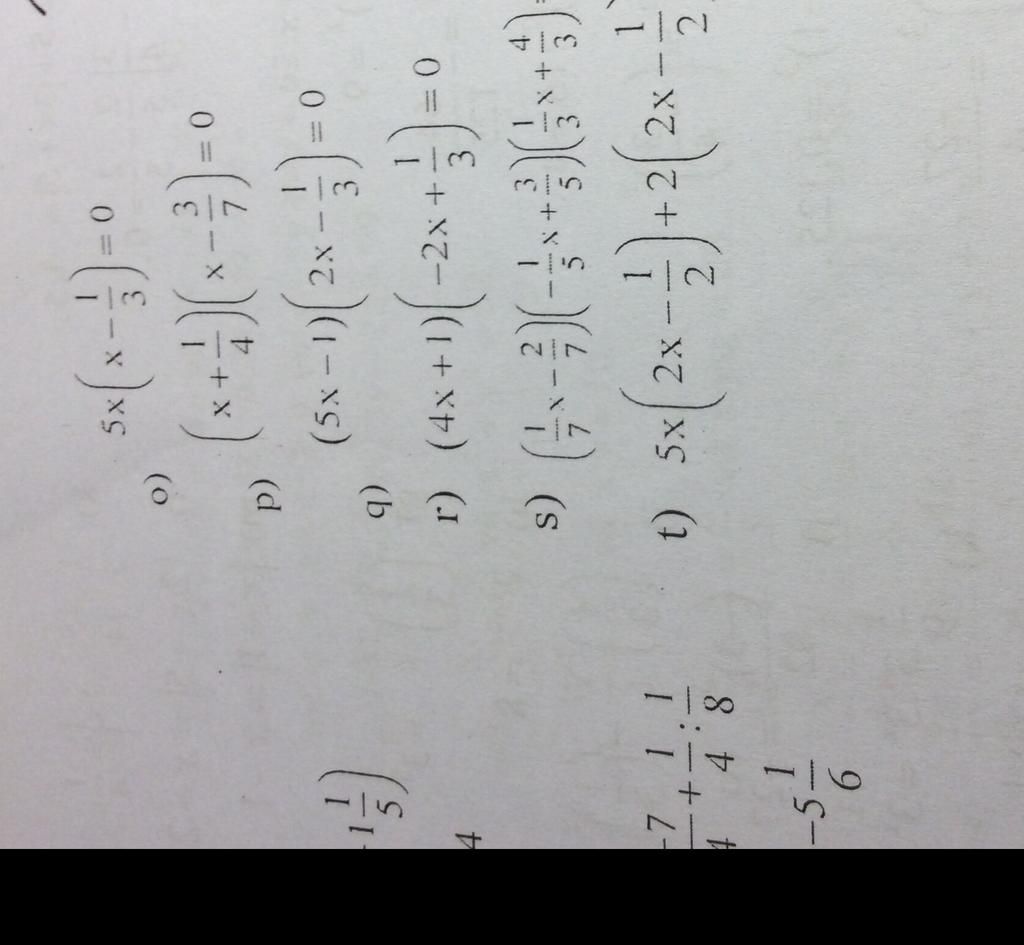 5x(x - 1/3) = 0
o) (x + 1/4)(x - 3/7) = 0
p) (5x - 1)(2x - 1/3) = 0
q)
r) (4x + 1)(-2x + 1/3) = 0
s) (1/7 x - 2/7)(-1/5 x + 3/5)(1/3 x + 4/3) =
t) 5x(2x - 1/2) + 2(2x - 1/2)
1 1/5)
4
-7/4 + 1/4 : 1/8
-5 1/6